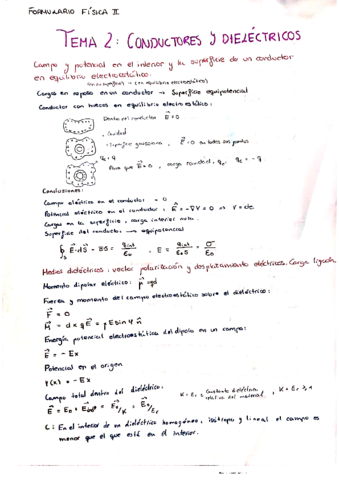 FORMULARIO FÍSICA II
TEMA 2: CONDUCTORES Y DIELÉCTRICOS
Campo y potencial en el interior y la superficie de un conductor
en equilibrio electrostático:
Cargas en reposo en un conductor → Superficie equipotencial
Conductor con huecos en equilibrio electrostático:
Dentro del conductor E⃗ = 0
Cavidad
Superficie gaussiana, E⃗ = 0 en todos sus puntos
qc = q
Para que E⃗ = 0, carga cavidad, qc, qc = -q
Conclusiones:
Campo eléctrico en el conductor = 0
Potencial eléctrico en el conductor: E⃗ = -∇V = 0 → V = cte.
Cargas en la superficie, carga interior nula.
Superficie del conductor → equipotencial
∮s E⃗·dS⃗ = ES = qint/ε0, E = qint/ε0S = σ/ε0
Medios dieléctricos: vector polarización y desplazamiento eléctricos. Carga ligada.
Momento dipolar eléctrico: p⃗ = qd
Fuerza y momento del campo electrostático sobre el dieléctrico:
F⃗ = 0
M⃗ = d × qE⃗ = pE sin φ n̂
Energía potencial electrostática del dipolo en un campo:
E⃗ = - Ex
Potencial en el origen
V(x) = - Ex
Campo total dentro del dieléctrico:
K = εr = Constante dieléctrica relativa del material, K = εr ≥ 1
E⃗ = E0 + E⃗ = E⃗0/K = E⃗0/εr
En el interior de un dieléctrico homogéneo, isótropo y lineal el campo es
menor que el que está en el interior.